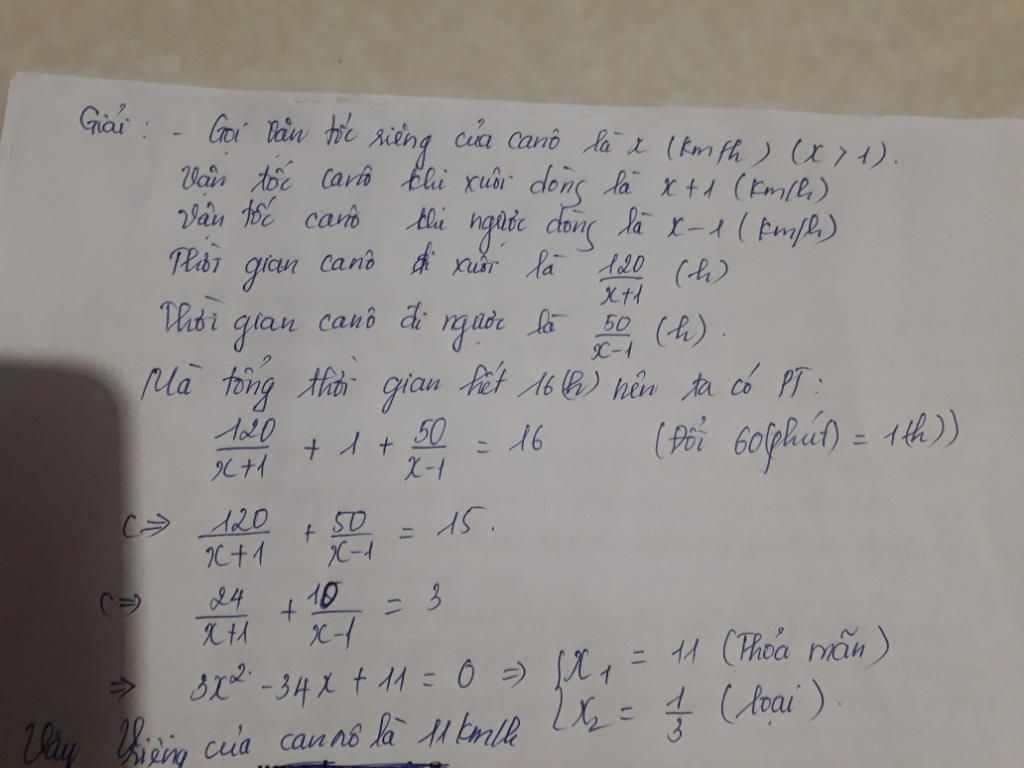 Giải : - Gọi vận tốc riêng của canô là x (km/h) (x > 1).
Vận tốc canô khi xuôi dòng là x+1 (km/h)
Vận tốc canô khi ngược dòng là x-1 (km/h)
Thời gian canô đi xuôi là 120/(x+1) (h)
Thời gian canô đi ngược là 50/(x-1) (h).
Mà tổng thời gian hết 16(h) nên ta có PT:
120/(x+1) + 1 + 50/(x-1) = 16 (Đổi 60(phút) = 1(h))
<=> 120/(x+1) + 50/(x-1) = 15.
<=> 24/(x+1) + 10/(x-1) = 3
=> 3x² - 34x + 11 = 0 => { x₁ = 11 (Thỏa mãn)
x₂ = 1/3 (loại).
Vậy Vriêng của cannô là 11km/h